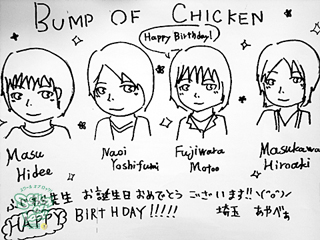 BUMP OF CHICKEN
Happy Birthday!
Masu Hideo
Naoi Yoshifumi
Fujiwara Motoo
Masukawa Hiroaki
生 お誕生日おめでとう ございます!! ヽ(^o^)ノ
HAPPY BIRTHDAY!!!!! 埼玉 あやべぇ